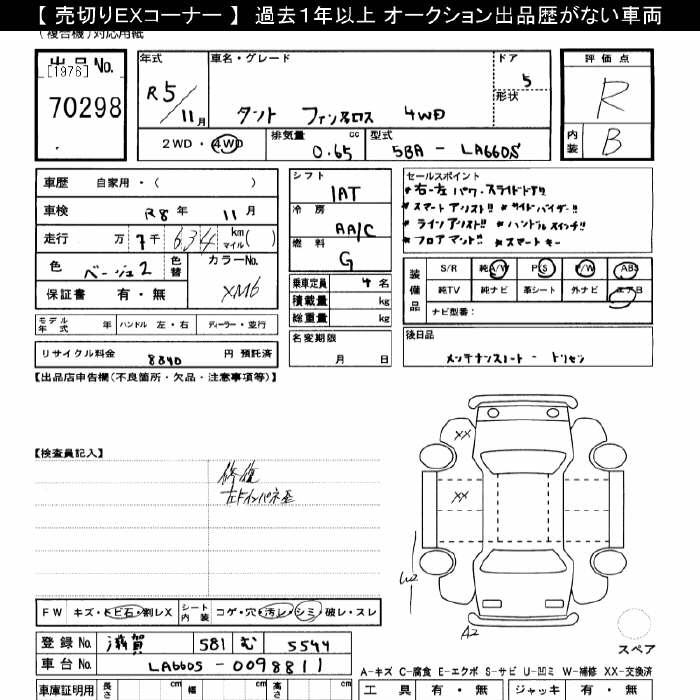 【 売切りEXコーナー 】 過去1年以上 オークション出品歴がない車両
(複合機)対応用紙
出品No.
[1976]
70298
年式 車名・グレード ドア
R5/11月 タント ファンクロス 4WD 5
形状
2WD・4WD 排気量 cc 0.65 型式 5BA - LA660S
評価点
R
内装 B
車歴 自家用・( )
車検 R8年 11月
走行 万 7千 634 km マイル( )
色 ベージュ2 色替 カラーNo.
XM6
保証書 有・無
モデル年式 年 ハンドル 左・右 ディーラー・並行
リサイクル料金 8840 円 預託済
シフト
IAT
冷房
AA/C
燃料
G
乗車定員 4名
積載量 kg
総重量 kg
名変期限
月 日
セールスポイント
*右-左 パワースライドドア!!
*スマートアシスト!! *サイドバイザー!!
*ラインアシスト!! *ハンドルスイッチ!!
*フロアマット!! *スマートキー
装備品 S/R 純A/W P/S P/W ABS
純TV 純ナビ 革シート 外ナビ エアB
ナビ型番:
後日品
メンテナンスノート - トリセツ
【出品店申告欄(不良箇所・欠品・注意事項等)】
【検査員記入】
修復
左ドインパネ歪
XX
XX
W2
A2
スペア
FW キズ・トビ石・割レX シート内装 コゲ・穴・汚レ・シミ・破レ・スレ
登録No. 滋賀 581 む 5544
車台No. LA660S-0098811
A-キズ C-腐食 E-エクボ S-サビ U-凹ミ W-補修 XX-交換済
車庫証明用 長さ cm 幅 cm 高さ cm
工具 有・無 ジャッキ 有・無